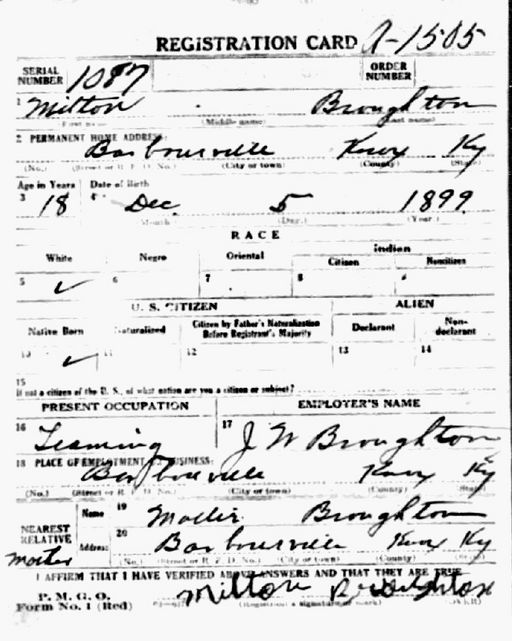 REGISTRATION CARD A-1505
SERIAL NUMBER 1087 ORDER NUMBER
1 Milton Broughton
First name (Middle name) (Last name)
2 PERMANENT HOME ADDRESS:
Barbourville Knox Ky
(No.) (Street or R. F. D. No.) (City or town) (County) (State)
Age in Years Date of Birth
3 18 4 Dec. 5 1899
Month (Day.) (Year.)
RACE
White Negro Oriental Indian
Citizen Noncitizen
5 ✓ 6 7 8
U. S. CITIZEN ALIEN
Native Born Naturalized Citizen by Father's Naturalization Before Registrant's Majority Declarant Non-declarant
10 ✓ 11 12 13 14
15
If not a citizen of the U. S., of what nation are you a citizen or subject?
PRESENT OCCUPATION EMPLOYER'S NAME
16 Teaming 17 J W Broughton
18 PLACE OF EMPLOYMENT OR BUSINESS:
Barbourville Knox Ky
(No.) (Street or R. F. D. No.) (City or town) (County) (State)
NEAREST RELATIVE Name 19 Broughton
mother Address 20 Barbourville Knox Ky
(No.) (Street or R. F. D. No.) (City or town) (County) (State)
I AFFIRM THAT I HAVE VERIFIED ABOVE ANSWERS AND THAT THEY ARE TRUE
P. M. G. O.
Form No. 1 (Red) Milton Broughton
(Registrant's signature or mark) (OVER)